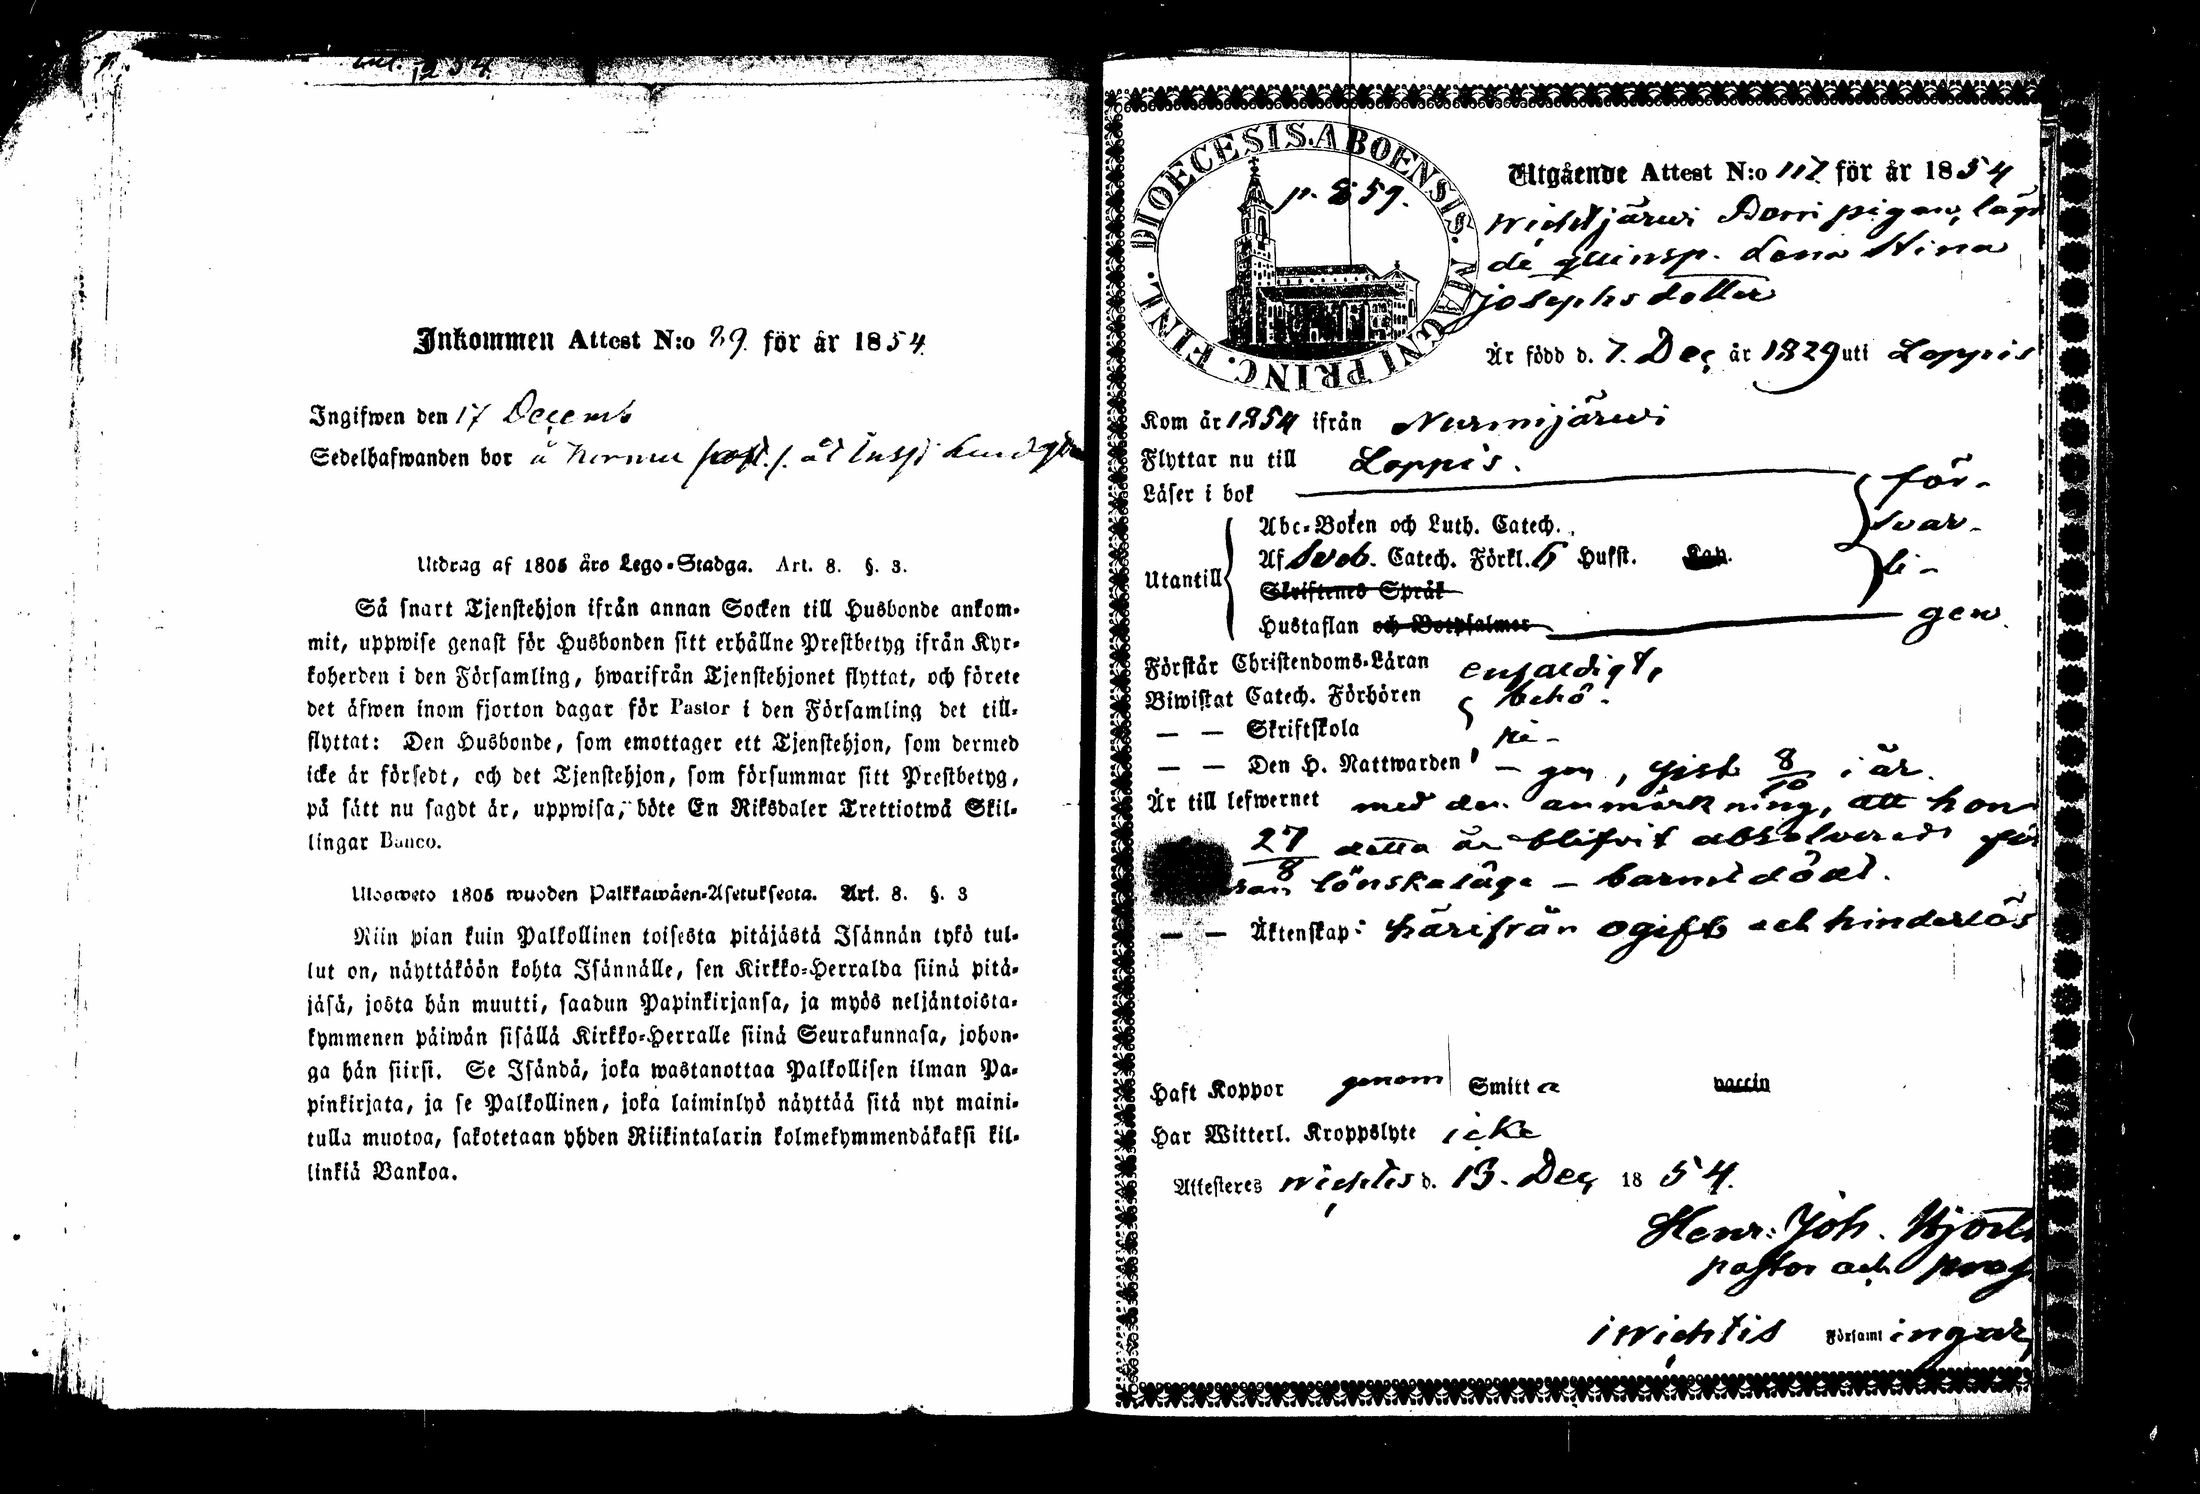 Inkommen Attest N:o 89. för år 1854.
Ingifwen den 17 Decemb
Sedelhafwanden bor å
Utdrag af 1805 års Lego-Stadga. Art. 8. §. 3.
Så snart Tjenstehjon ifrån annan Socken till Husbonde ankom-
mit, uppwise genast för Husbonden sitt erhållne Prestbetyg ifrån Kyr-
koherden i den Församling, hwarifrån Tjenstehjonet flyttat, och förete
det äfwen inom fjorton dagar för Pastor i den Församling det till-
flyttat: Den Husbonde, som emottager ett Tjenstehjon, som dermed
icke är försedt, och det Tjenstehjon, som försummar sitt Prestbetyg,
på sätt nu sagdt är, uppwisa, böte En Riksdaler Trettiotwå Skil-
lingar Banco.
Ulosweto 1805 wuoden Palkkawäen-Asetuksesta. Art. 8. §. 3
Niin pian kuin Palkollinen toisesta pitäjästä Isännän tykö tul-
lut on, näyttäköön kohta Isännälle, sen Kirkko-Herralda siinä pitä-
jäsä, josta hän muutti, saadun Papinkirjansa, ja myös neljäntoista-
kymmenen päiwän sisällä Kirkko-Herralle siinä Seurakunnasa, johon-
ga hän siirsi. Se Isändä, joka wastanottaa Palkollisen ilman Pa-
pinkirjata, ja se Palkollinen, joka laiminlyö näyttää sitä nyt maini-
tulla muotoa, sakotetaan yhden Riikintalarin kolmekymmendäkaksi kil-
linkiä Bankoa.
DIOECESIS. ABOENSIS. MAGNI PRINC. FINL.
p. 859.
Utgående Attest N:o 117 för år 1854
Wichtjärwi Dorri pigan, läg
de qvinsp. Lena Stina
Josephsdotter
Är född d. 7. Dec. år 1829 uti Loppis
Kom år 1854 ifrån Nurmijärwi
Flyttar nu till Loppis.
Läser i bok för-
Abc-Boken och Luth. Catech. svar-
Utantill Af Sveb. Catech. Förkl. 6 Hufst. Cap. li-
Skriftenes Språk
Hustaflan och Botpsalmer gen.
Förstår Christendoms-Läran enfaldigt,
Biwistat Catech. Förhören behö-
— — Skriftskola ri-
— — Den H. Nattwarden gen, sist 8/10 i år.
Är till lefwernet med den anmärkning, att hon
27/8 detta år blifvit absolverad för
lönskaläge — barnet dödt.
— — Äktenskap: härifrån ogift och hinderlös
Haft Koppor genom Smitta vaccin
Har Witterl. Kroppslyte icke
Attesteres Wichtis d. 13. Dec 1854.
Henr: Joh. Hjorth
pastor och prost
i Wichtis Församlingar,